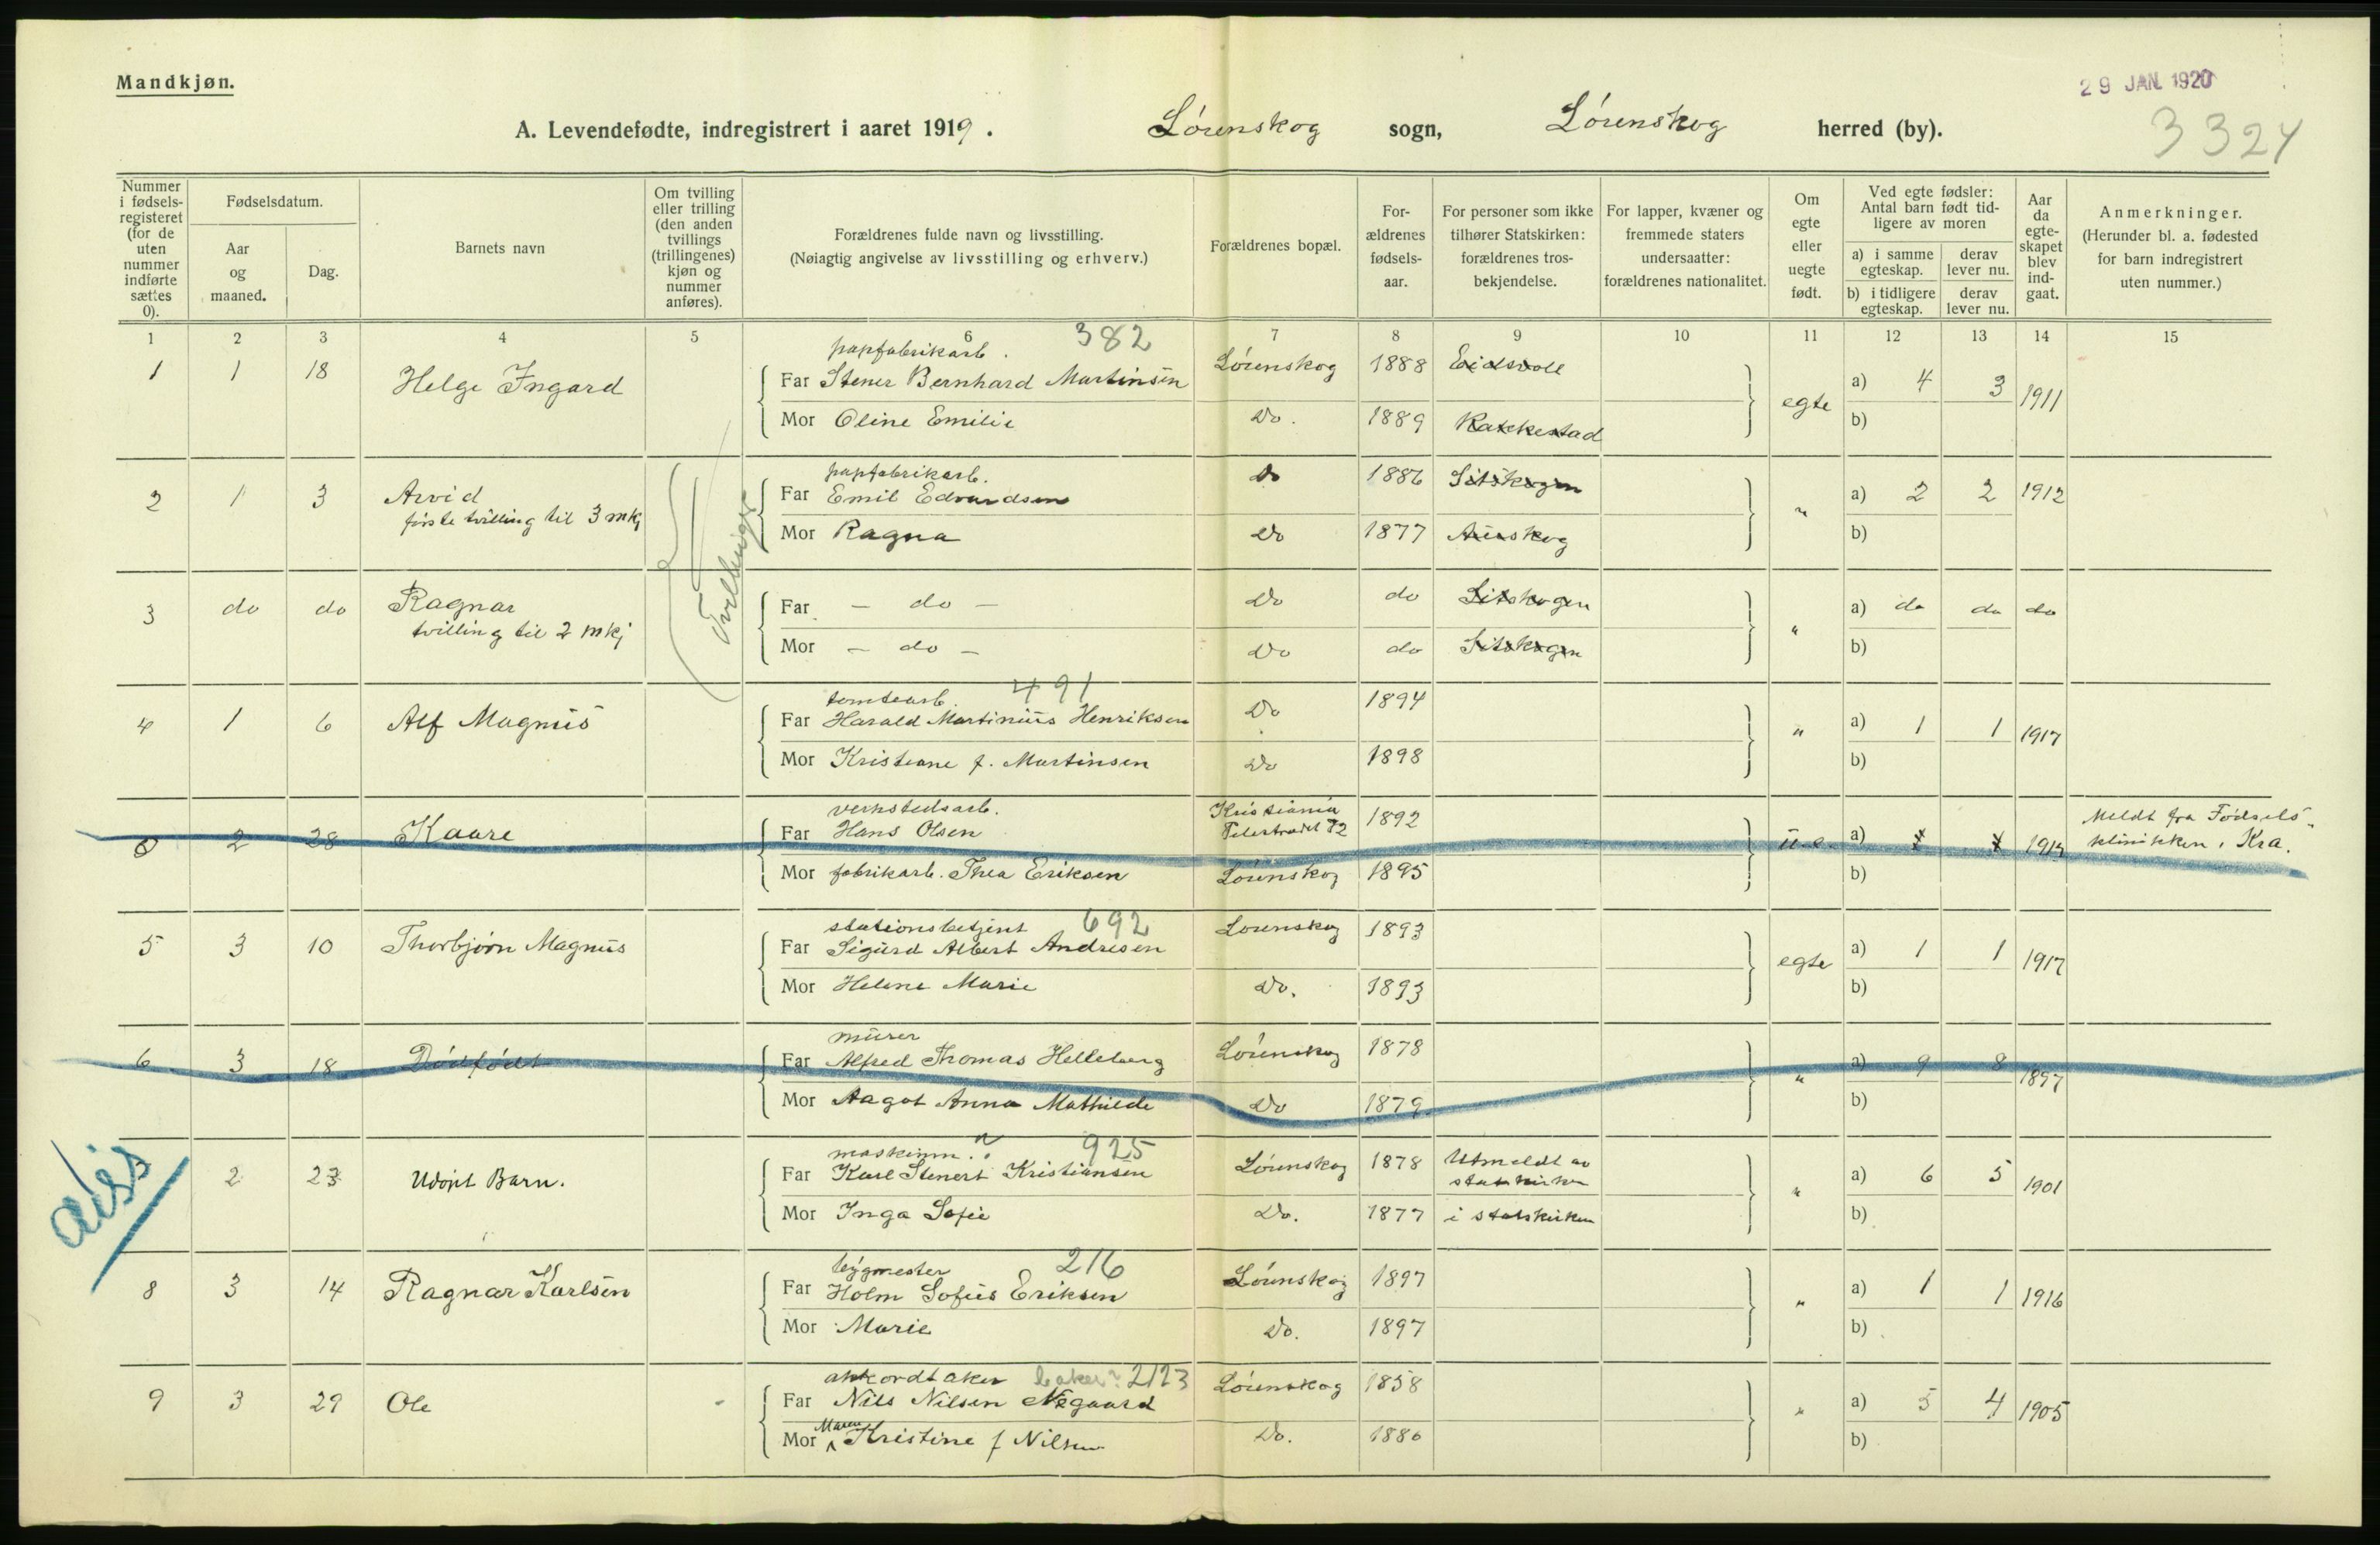 Mandkjøn.
29 JAN. 1920
A. Levendefødte, indregistrert i aaret 1919. Lørenskog sogn, Lørenskog herred (by). 3324
Nummer i fødselsregisteret (for de uten nummer indførte sættes 0).
Fødselsdatum.
Aar og maaned.
Dag.
Barnets navn
Om tvilling eller trilling (den anden tvillings (trillingenes) kjøn og nummer anføres).
Forældrenes fulde navn og livsstilling.
(Nøiagtig angivelse av livsstilling og erhverv.)
Forældrenes bopæl.
Forældrenes fødselsaar.
For personer som ikke tilhører Statskirken: forældrenes trosbekjendelse.
For lapper, kvæner og fremmede staters undersaatter: forældrenes nationalitet.
Om egte eller uegte født.
Ved egte fødsler: Antal barn født tidligere av moren
a) i samme egteskap. derav lever nu.
b) i tidligere egteskap. derav lever nu.
Aar da egteskapet blev indgaat.
Anmerkninger.
(Herunder bl. a. fødested for barn indregistrert uten nummer.)
1 2 3 4 5 6 7 8 9 10 11 12 13 14 15
papfabrikarb. 382
1 1 18 Helge Ingard Far Stener Bernhard Martinsen Lørenskog 1888 Eidsvoll egte a) 4 3 1911
Mor Oline Emilie Do. 1889 Rakkestad b)
papfabrikarb.
2 1 3 Arvid Far Emil Edvardsen Do 1886 Sitskogen " a) 2 2 1912
første tvilling til 3 mkj Tvillinger
Mor Ragna Do 1877 Aurskog b)
3 do do Ragnar Far - do - Do do Sitskogen " a) do do do
tvilling til 2 mkj
Mor - do - Do do Sitskogen b)
tomtearb. 491
4 1 6 Alf Magnus Far Harald Martinius Henriksen Do 1894 " a) 1 1 1917
Mor Kristiane f. Martinsen Do 1898 b)
verkstedsarb. Kristiania
0 2 28 Kaare Far Hans Olsen 1892 u.e. a) Meldt fra Fødsels-
klinikken i Kra.
Mor fabrikarb. Thea Eriksen Lørenskog 1895 b)
stationsbetjent 692
5 3 10 Thorbjørn Magnus Far Sigurd Albert Andresen Lørenskog 1893 egte a) 1 1 1917
Mor Helene Marie Do. 1893 b)
murer
6 3 18 Dødfødt Far Alfred Thomas Helleberg Lørenskog 1878 " a) 9 8 1897
Mor Aagot Anna Mathilde Do 1879 b)
maskinm. 925
2 23 Udøpt Barn. Far Karl Stenert Kristiansen Lørenskog 1878 Utmeldt av statskirken " a) 6 5 1901
Mor Inga Sofie Do. 1877 i statskirken b)
bygmester 216
8 3 14 Ragnar Karlsen Far Holm Sofus Eriksen Lørenskog 1897 " a) 1 1 1916
Mor Marie Do. 1897 b)
akkordtaker baker? 2123
9 3 29 Ole Far Nils Nilsen Nygaard Lørenskog 1858 " a) 5 4 1905
Mor Maren Kristine f Nilsen Do. 1886 b)